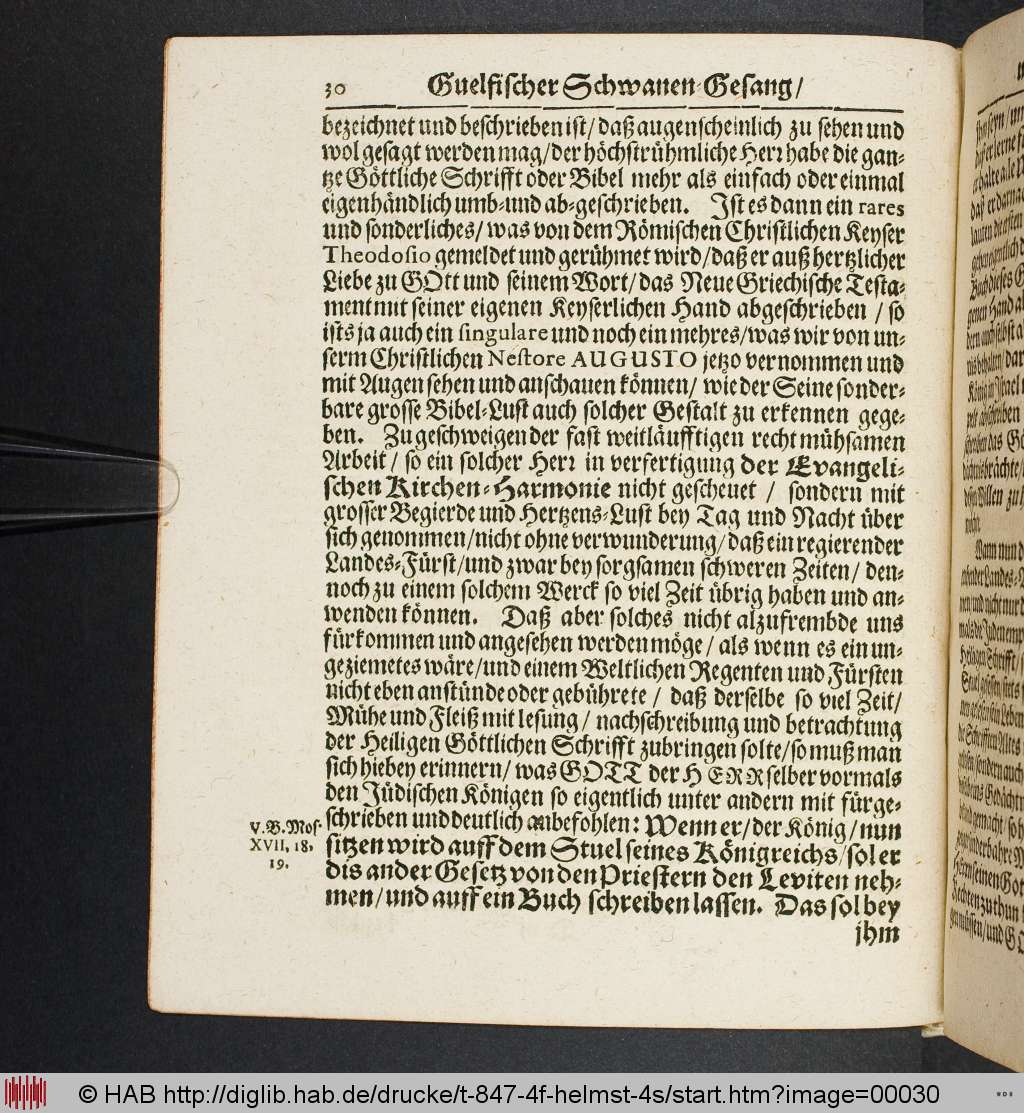 30 Guelfischer Schwanen-Gesang/
bezeichnet und beschrieben ist/ daß augenscheinlich zu sehen und
wol gesagt werden mag/ der höchstrühmliche Herr habe die gan-
tze Göttliche Schrifft oder Bibel mehr als einfach oder einmal
eigenhändlich umb- und ab-geschrieben. Ist es dann ein rares
und sonderliches/ was von dem Römischen Christlichen Keyser
Theodosio gemeldet und gerühmet wird/ daß er auß hertzlicher
Liebe zu GOtt und seinem Wort/ das Neue Griechische Testa-
ment mit seiner eigenen Keyserlichen Hand abgeschrieben / so
ists ja auch ein singulare und noch ein mehres/ was wir von un-
serm Christlichen Nestore AUGUSTO jetzo vernommen und
mit Augen sehen und anschauen können/ wie der Seine sonder-
bare grosse Bibel-Lust auch solcher Gestalt zu erkennen gege-
ben. Zu geschweigen der fast weitläufftigen recht mühsamen
Arbeit / so ein solcher Herr in verfertigung der Evangeli-
schen Kirchen-Harmonie nicht gescheuet / sondern mit
grosser Begierde und Hertzens-Lust bey Tag und Nacht über
sich genommen/ nicht ohne verwunderung/ daß ein regierender
Landes-Fürst/ und zwar bey sorgsamen schweren Zeiten/ den-
noch zu einem solchem Werck so viel Zeit übrig haben und an-
wenden können. Daß aber solches nicht alzufrembde uns
fürkommen und angesehen werden möge / als wenn es ein un-
geziemetes wäre/ und einem Weltlichen Regenten und Fürsten
nicht eben anstünde oder gebührete / daß derselbe so viel Zeit/
Mühe und Fleiß mit lesung / nachschreibung und betrachtung
der Heiligen Göttlichen Schrifft zubringen solte/ so muß man
sich hiebey erinnern/ was GOTT der HERR selber vormals
den Jüdischen Königen so eigentlich unter andern mit fürge-
schrieben und deutlich anbefohlen: Wenn er/ der König/ nun
sitzen wird auff dem Stuel seines Königreichs/ sol er
dis ander Gesetz von den Priestern den Leviten neh-
men/ und auff ein Buch schreiben lassen. Das sol bey
jhm
V. B. Mos.
XVII, 18,
19.
© HAB http://diglib.hab.de/drucke/t-847-4f-helmst-4s/start.htm?image=00030